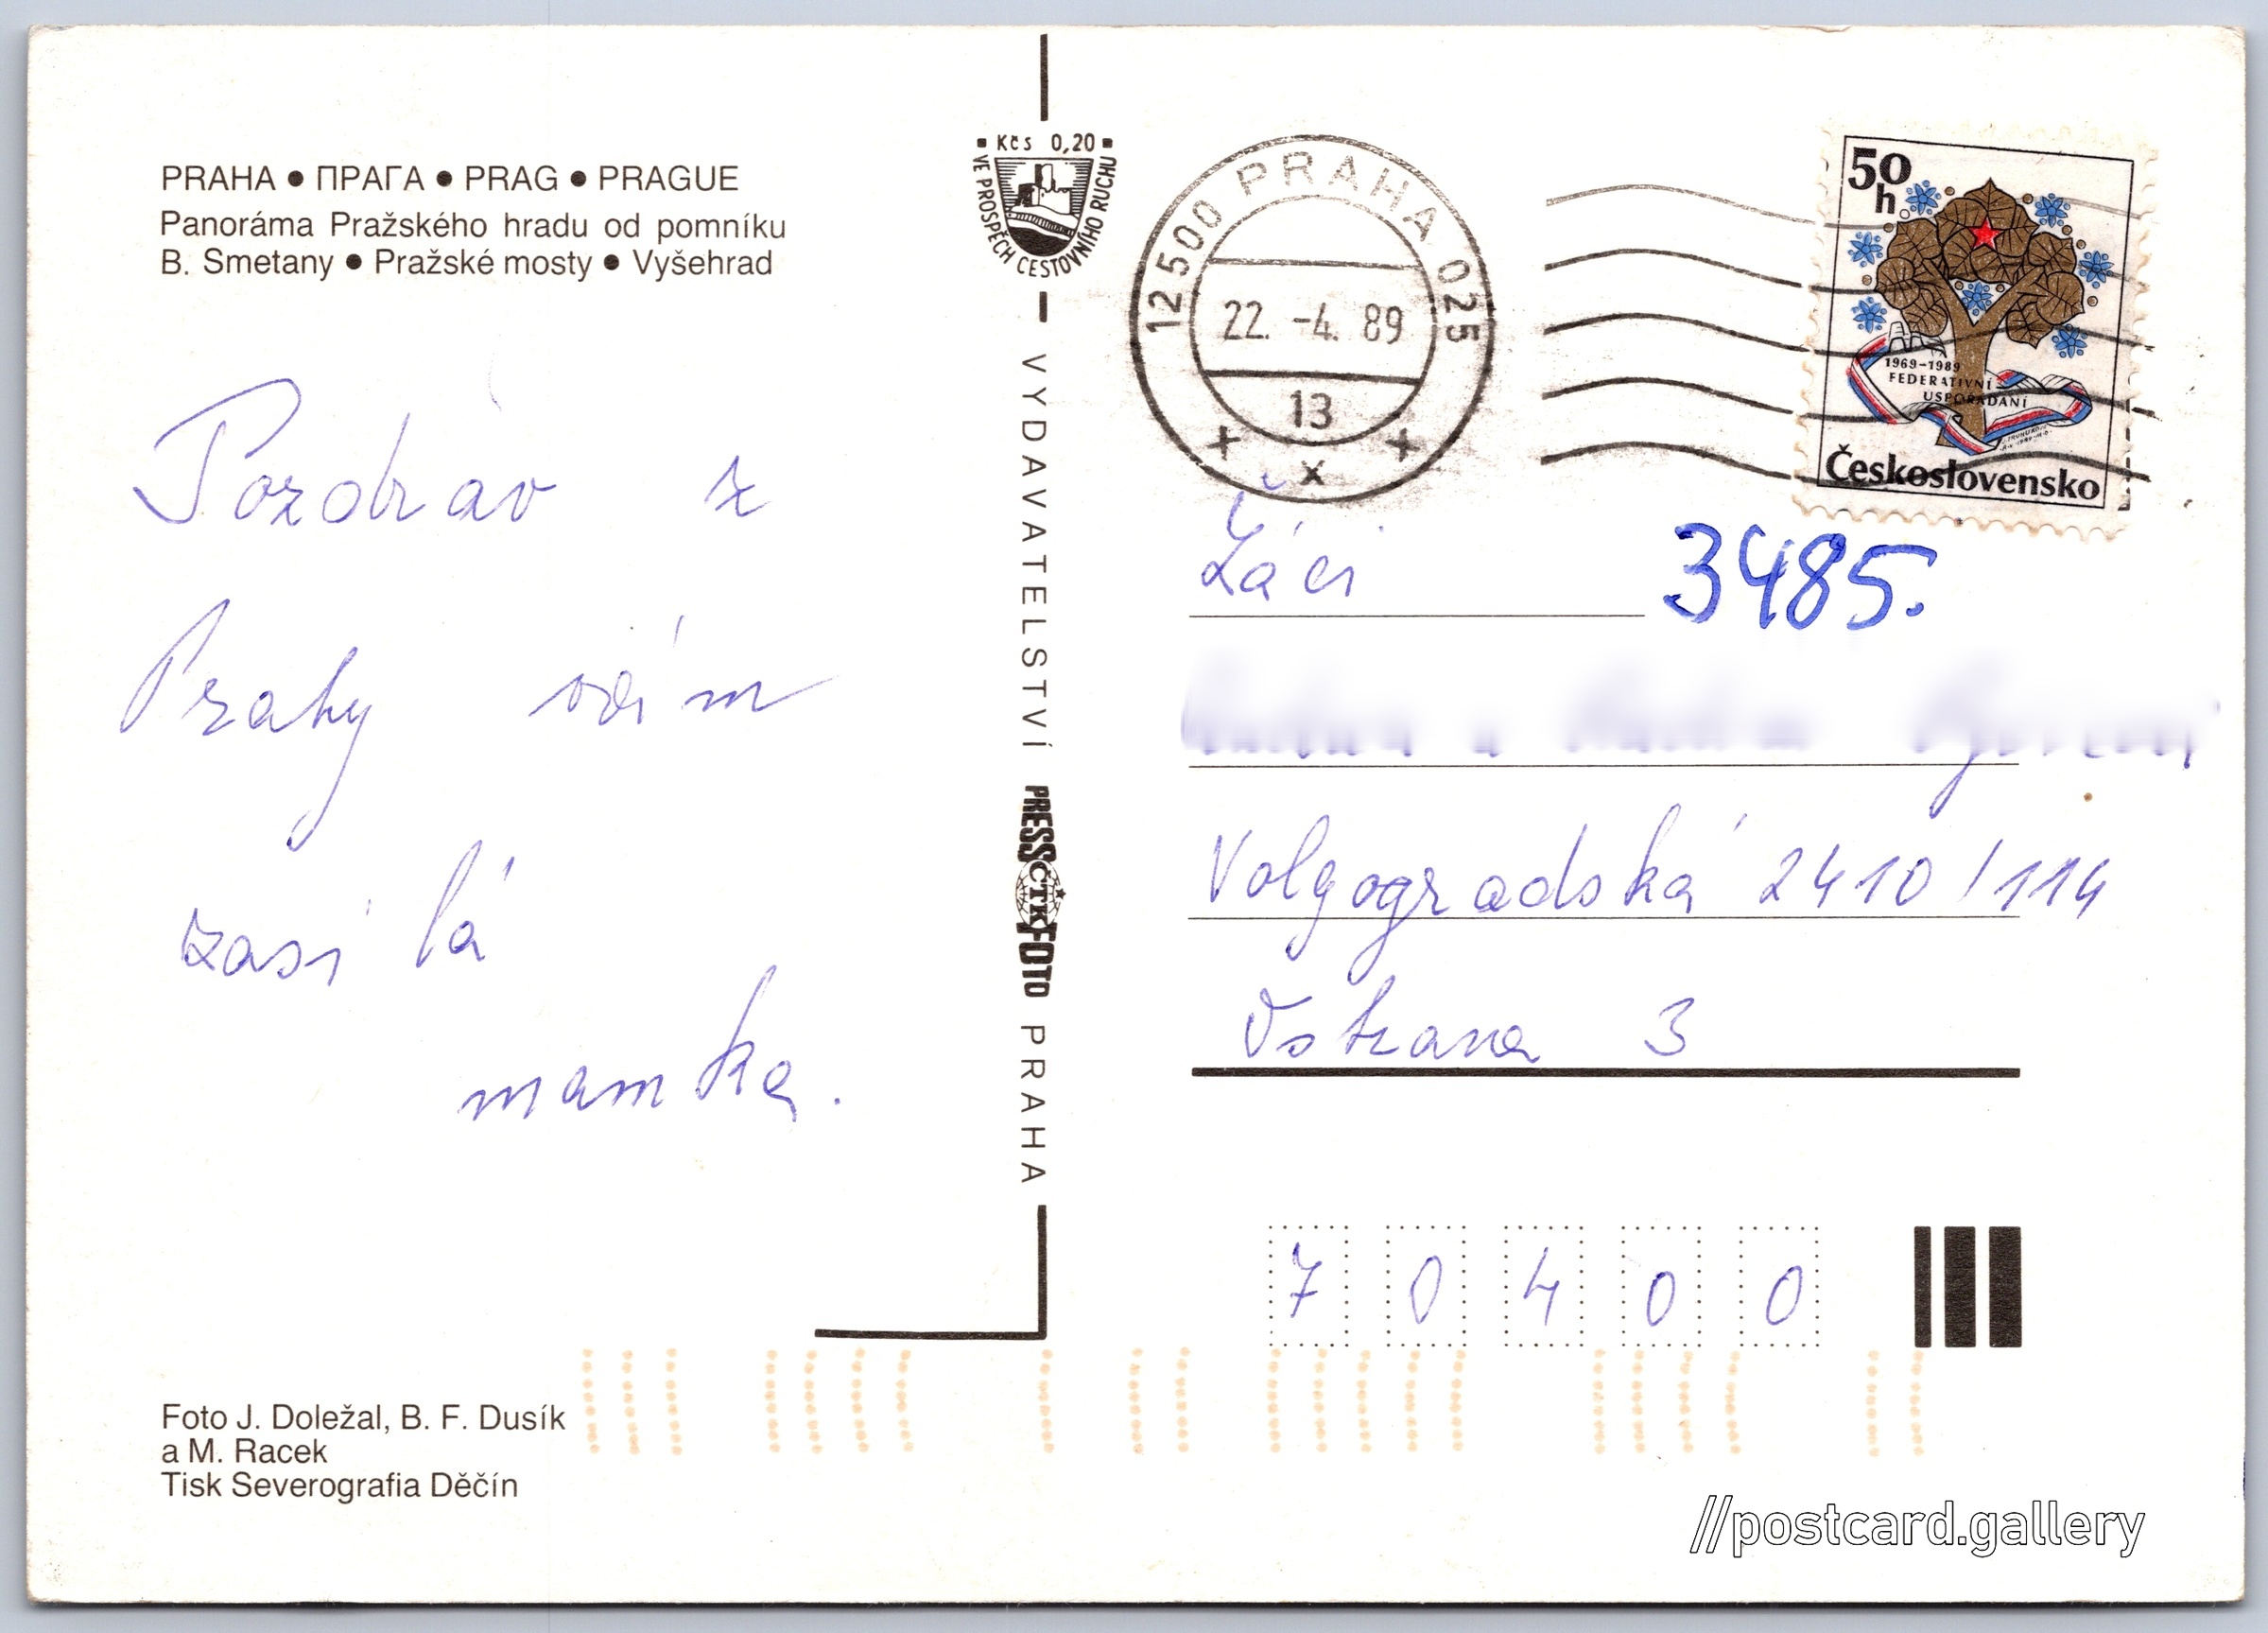 PRAHA ● ПРАГА ● PRAG ● PRAGUE
Panoráma Pražského hradu od pomníku
B. Smetany ● Pražské mosty ● Vyšehrad
Pozdrav z
Prahy vám
zasílá
mamka.
Foto J. Doležal, B. F. Dusík
a M. Racek
Tisk Severografia Děčín
Kčs 0,20
VE PROSPĚCH CESTOVNÍHO RUCHU
VYDAVATELSTVÍ PRESSFOTO PRAHA
ČTK
12500 PRAHA 025
22. -4. 89
13
x
50
h
1969-1989
FEDERATIVNÍ
USPOŘÁDÁNÍ
Československo
Žáci
3485.
Volgogradská 2410/114
Ostrava 3
70400
//postcard.gallery